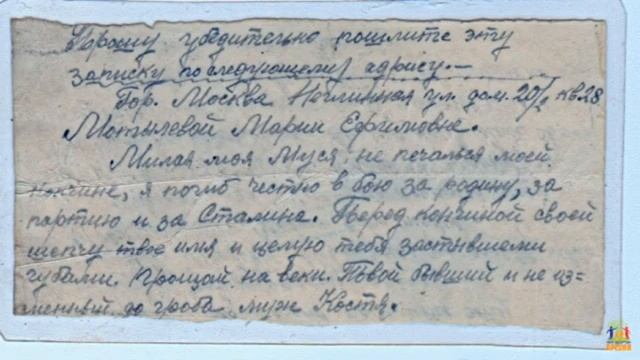 Прошу убедительно пошлите эту
записку последующему адрису.—
Гор. Москва Неглинная ул. дом. 20/2 кв 28
Мотылевой Марии Ефимовне.
Милая моя Муся, не печалься моей
кончине, я погиб честно в бою за родину, за
партию и за Сталина. Перед кончиной своей
шепчу твое имя и целую тебя застывшеми
губами. Прощай на веки. Твой бывший и не из=
менный до гроба муж Костя.